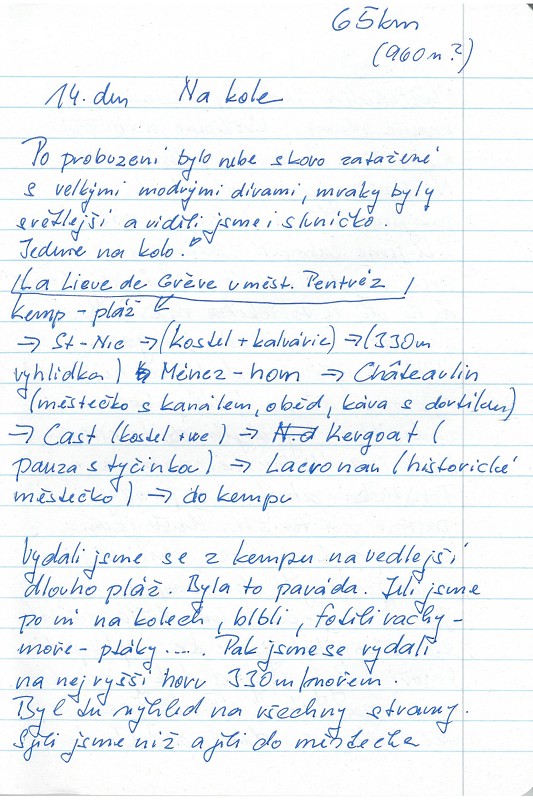 65km
(960m?)
14. den Na kole
Po probuzení bylo nebe skoro zatažené
s velkými modrými dírami, mraky byly
světlejší a viděli jsme i sluníčko.
Jedeme na kolo.
(La Lieue de Grève u měst. Pentréz)
kemp - pláž
→ St-Nic → (kostel + kalvárie) → (330m
vyhlídka) Ménez-hom → Châteaulin
(městečko s kanálem, oběd, káva s dortíkem)
→ Cast (kostel + wc) → Kergoat (
pauza s tyčinkou) → Locronan (historické
městečko) → do kempu
Vydali jsme se z kempu na vedlejší
dlouho pláž. Byla to paráda. Jeli jsme
po ní na kolech, blbli, fotili racky -
moře - ptáky .... Pak jsme se vydali
na nejvyšší horu 330m/mořem.
Byl tu výhled na všechny strany.
Sjeli jsme níž a jeli do městečka